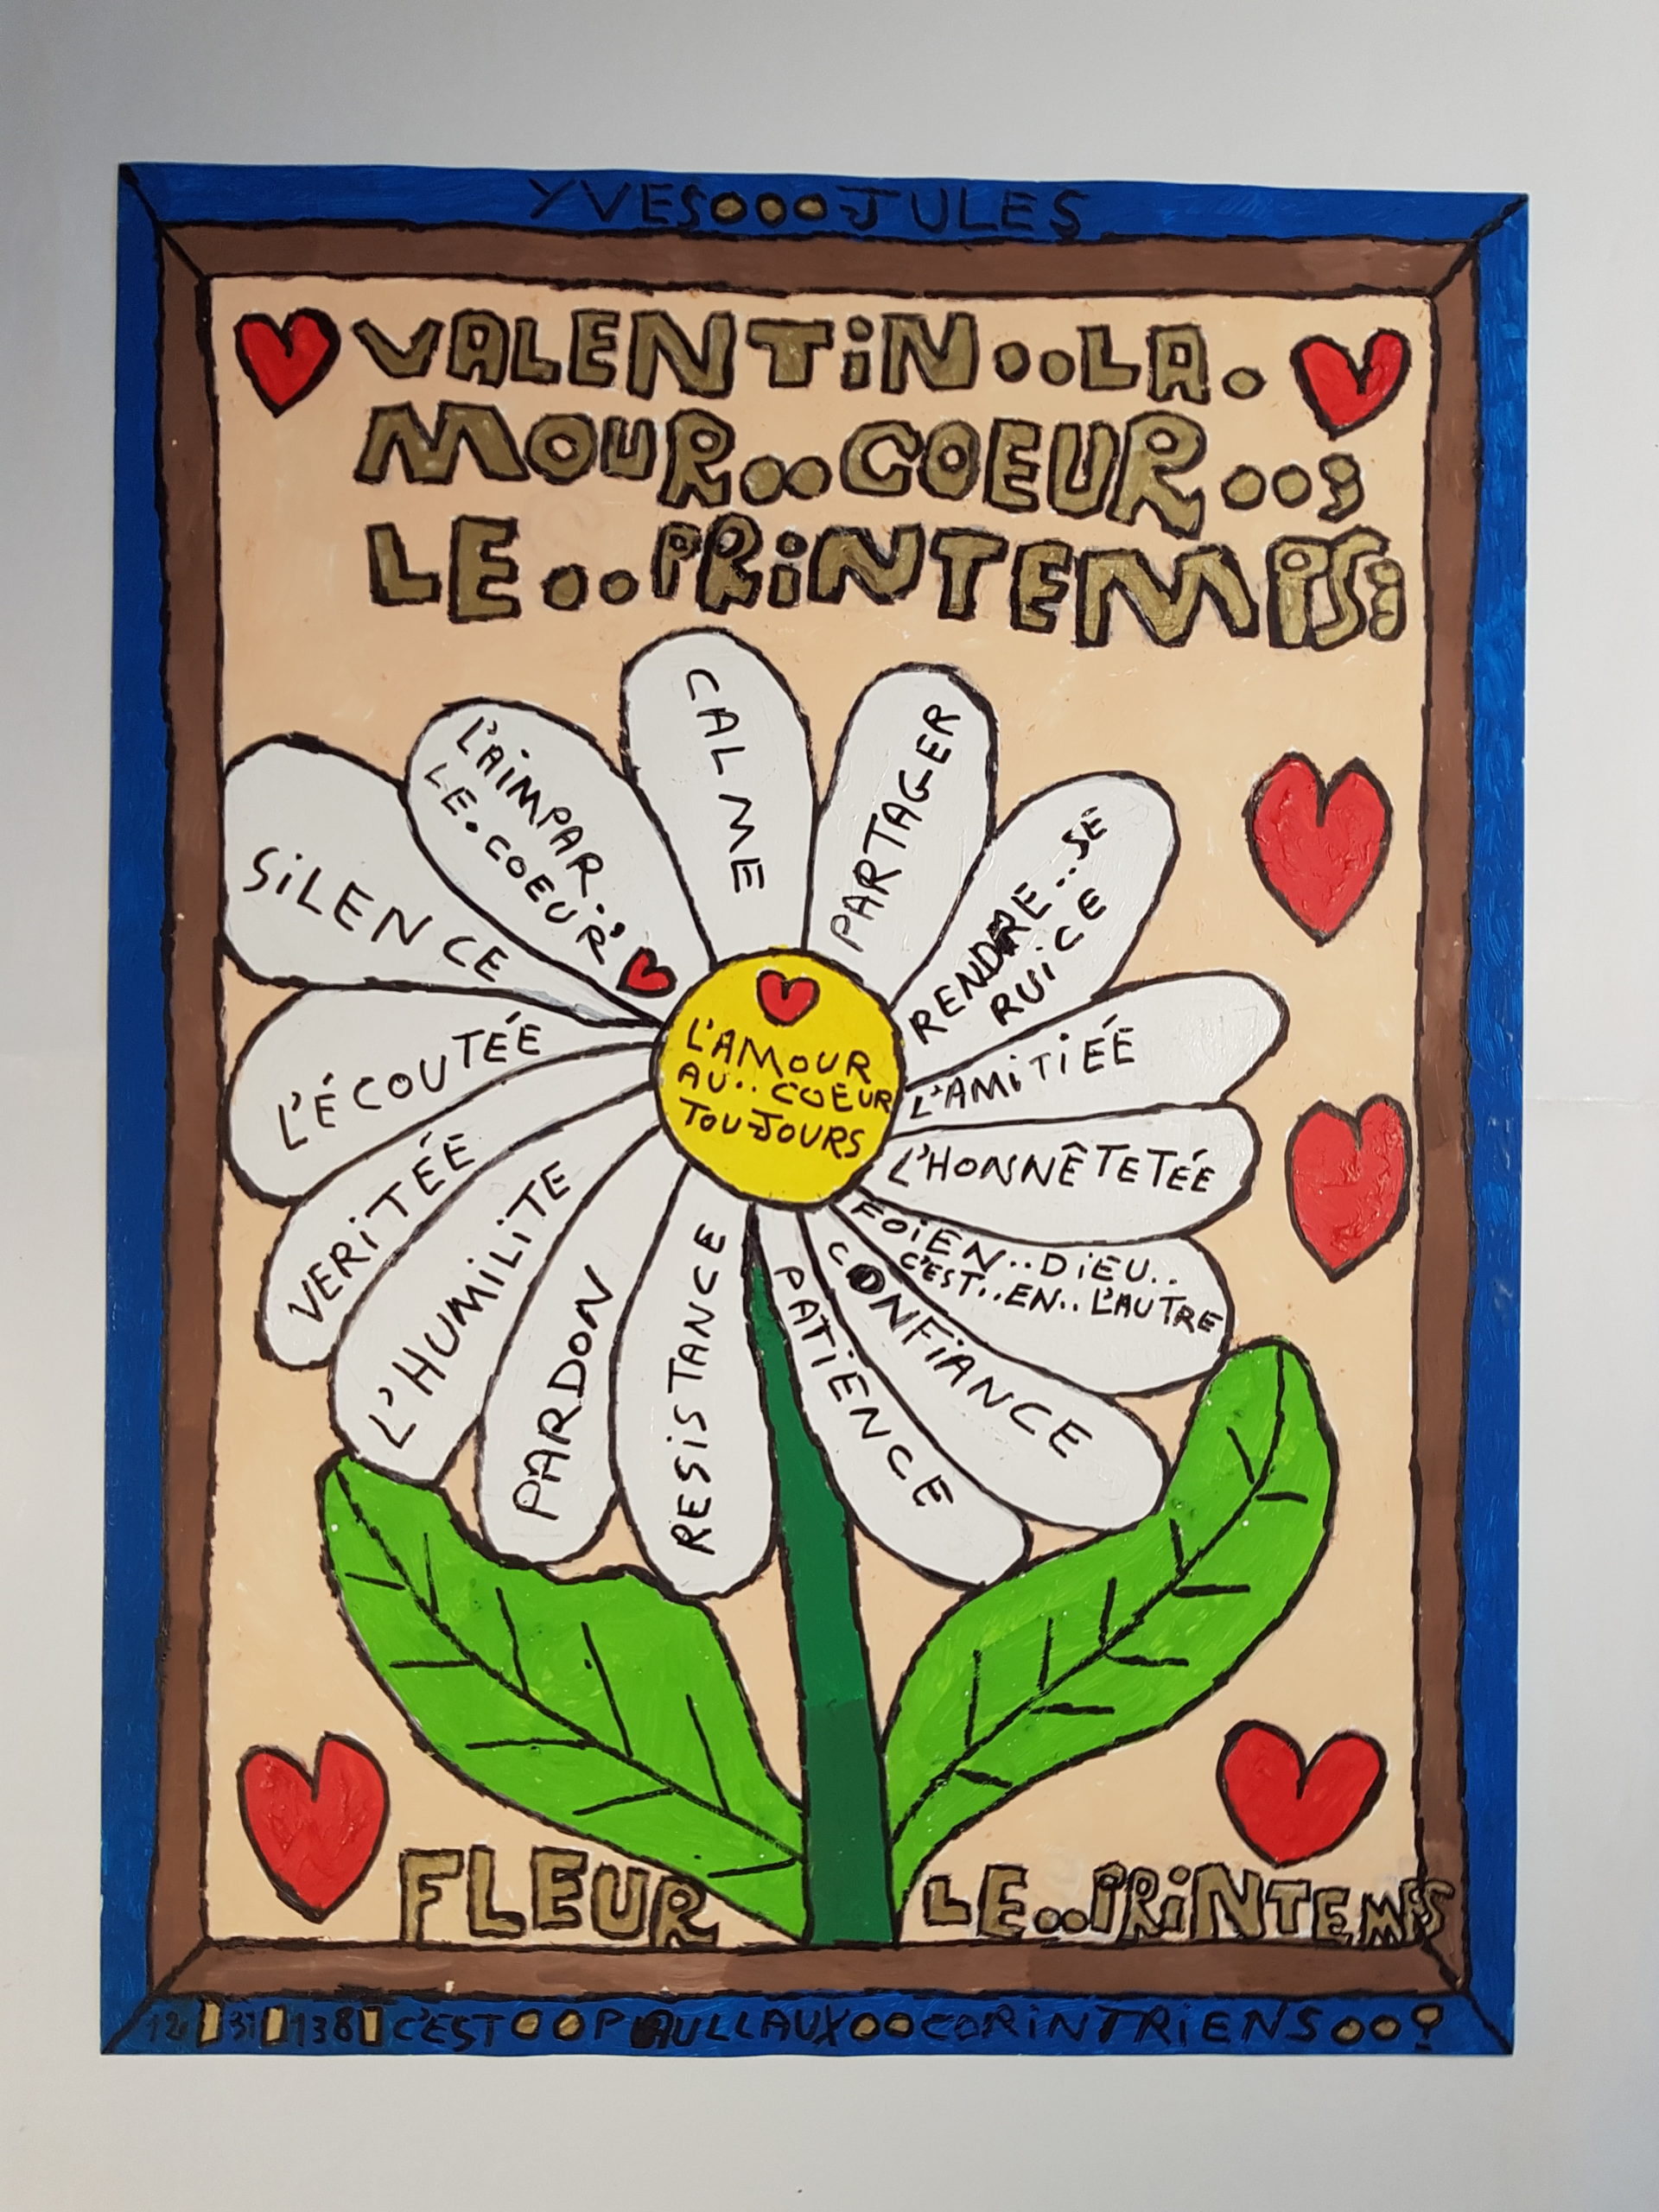 YVES...JULES
VALENTiN...LA.
MOUR..COEUR..;
LE..PRiNTEMPS:
CALME
L'AiMPAR.
LE.COEUR'
SiLENCE
L'ÉCOUTÉE
VERiTÉE
L'HUMiLiTE
PARDON
RESiSTANCE
PATiENCE
CONFiANCE
FOiEN..DiEU..
C'EST..EN..L'AUTRE
L'HONNÊTETÉE
L'AMiTiEÉ
RENDRE...SE
RUiCE
PARTAGER
L'AMOUR
AU..COEUR
TOUJOURS
FLEUR
LE..PRiNTEMPS
12 31 138 C'EST..PAULLAUX..CORiNTRiENS..?